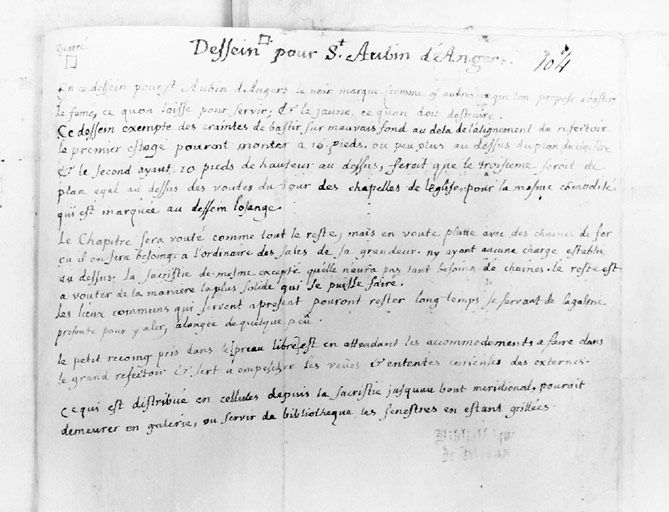 quarré
Dessein pour St Aubin d'Angers. 104
En ce dessein pour st Aubin d'Angers le noir marque comme es autres ce que l'on propose a bastir,
le fume, ce quon laisse pour servir; & le jaune, ce quon doit destruire.
Ce dessein exempte des craintes de bastir sur mauvais fond au dela de l'alignement du refectoir
le premier estage pouront monter a pieds, ou peu plus au dessus du plan du cloistre
& le second ayant 10 pieds de hauteur au dessus, feroit que le troisieme seroit de
plan egal au dessus des voutes du tour des chapelles de l'eglise, pour la mesme cõmodite
qui est marquée au dessein losange.
Le Chapitre sera vouté comme tout le reste; mais en voute platte avec des chaines de fer
ou il en sera besoing, a l'ordinaire des sales de sa grandeur. ny ayant aucune charge establie
au dessus. la sacristie de mesme excepté qu'elle n'aura pas tant besoin de chaines. le reste est
a vouter de la maniere la plus solide qui se puisse faire.
les lieux communs qui servent apresent pouront rester long temps se servant de la galerie
presente pour y aler, alongée de quelque peu.
le petit recoing pris dans le preau libre est en attendant les accommodements a faire dans
le grand refectoir & sert a empescher les veües & ententes curieuses des externes.
Ce qui est distribue en cellules depuis la sacristie jusquau bout meridional, pouroit
demeurer en galerie, ou servir de bibliotheque les fenestres en estans grillées